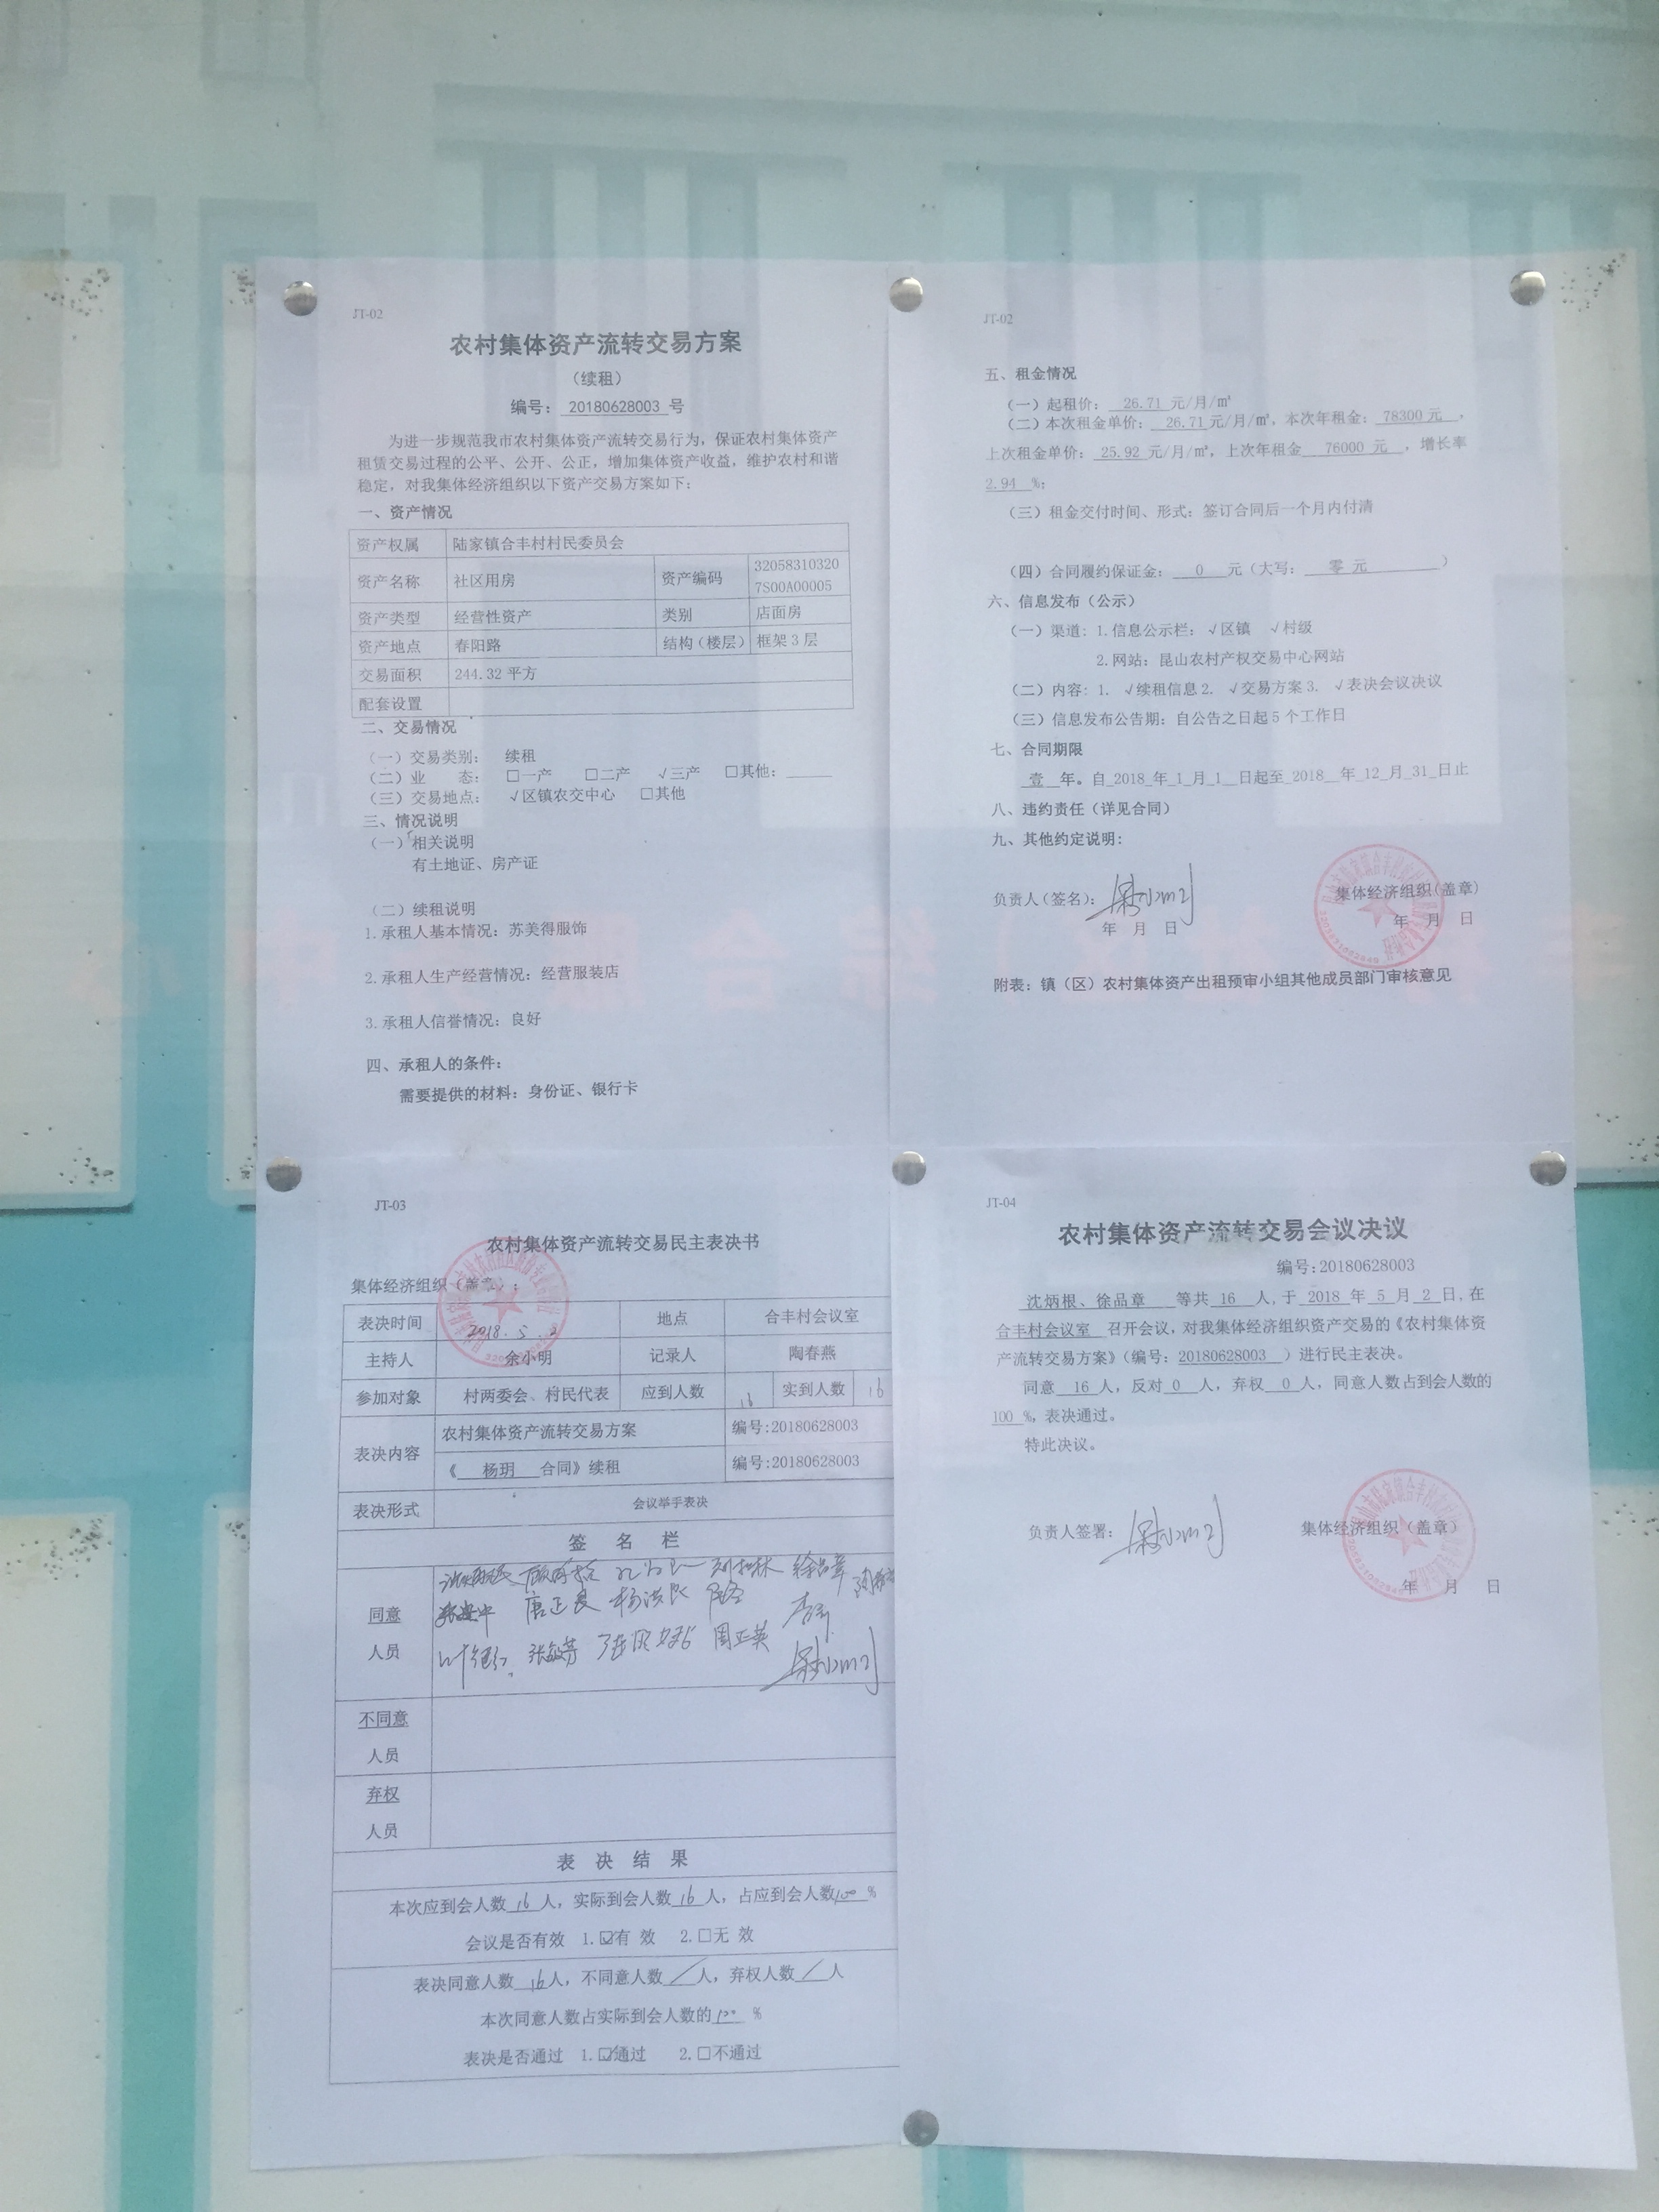 JT-02
农村集体资产流转交易方案
（续租）
编号：20180628003号
为进一步规范我市农村集体资产流转交易行为，保证农村集体资产
租赁交易过程的公平、公开、公正，增加集体资产收益，维护农村和谐
稳定，对我集体经济组织以下资产交易方案如下：
一、资产情况
资产权属 陆家镇合丰村村民委员会
资产名称 社区用房 资产编码 320583103207S00A00005
资产类型 经营性资产 类别 店面房
资产地点 春阳路 结构（楼层） 框架3层
交易面积 244.32平方
配套设置
二、交易情况
（一）交易类别： 续租
（二）业 态： □一产 □二产 √三产 □其他：
（三）交易地点： √区镇农交中心 □其他
三、情况说明
（一）相关说明
有土地证、房产证
（二）续租说明
1.承租人基本情况：苏美得服饰
2.承租人生产经营情况：经营服装店
3.承租人信誉情况：良好
四、承租人的条件：
需要提供的材料：身份证、银行卡
JT-02
五、租金情况
（一）起租价： 26.71 元/月/㎡
（二）本次租金单价： 26.71 元/月/㎡，本次年租金： 78300元 ，
上次租金单价： 25.92 元/月/㎡，上次年租金 76000 元 ，增长率
2.94 %；
（三）租金交付时间、形式：签订合同后一个月内付清
（四）合同履约保证金： 0 元（大写： 零元 ）
六、信息发布（公示）
（一）渠道：1.信息公示栏：√区镇 √村级
2.网站：昆山农村产权交易中心网站
（二）内容：1. √续租信息2. √交易方案3. √表决会议决议
（三）信息发布公告期：自公告之日起5个工作日
七、合同期限
壹 年。自 2018 年 1 月 1 日起至 2018 年 12 月 31 日止
八、违约责任（详见合同）
九、其他约定说明：
负责人（签名）： 集体经济组织（盖章）
年 月 日 年 月 日
附表：镇（区）农村集体资产出租预审小组其他成员部门审核意见
JT-03
农村集体资产流转交易民主表决书
集体经济组织（盖章）：
表决时间 2018.5.2 地点 合丰村会议室
主持人 余小明 记录人 陶春燕
参加对象 村两委会、村民代表 应到人数 16 实到人数 16
表决内容 农村集体资产流转交易方案 编号:20180628003
《 杨玥 合同》续租 编号:20180628003
表决形式 会议举手表决
签 名 栏
同意
人员
徐品章
唐正良 杨洪民
张敏芳 周正英
不同意
人员
弃权
人员
表 决 结 果
本次应到会人数 16 人，实际到会人数 16 人，占应到会人数 100 %
会议是否有效 1.☑有 效 2.□无 效
表决同意人数 16 人，不同意人数 / 人，弃权人数 / 人
本次同意人数占实际到会人数的 100 %
表决是否通过 1.☑通过 2.□不通过
JT-04
农村集体资产流转交易会议决议
编号:20180628003
沈炳根、徐品章 等共 16 人,于 2018 年 5 月 2 日,在
合丰村会议室 召开会议,对我集体经济组织资产交易的《农村集体资
产流转交易方案》（编号：20180628003 ）进行民主表决。
同意 16 人，反对 0 人，弃权 0 人，同意人数占到会人数的
100 %，表决通过。
特此决议。
负责人签署： 集体经济组织（盖章）
年 月 日